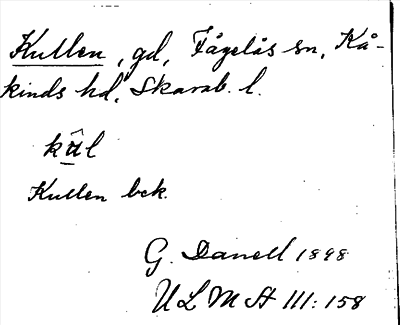 Kullen, gd, Fågelås sn, Kå-
kinds hd, Skarab. l.
kŭl
Kullen bck.
G. Danell 1898
ULMA III:158